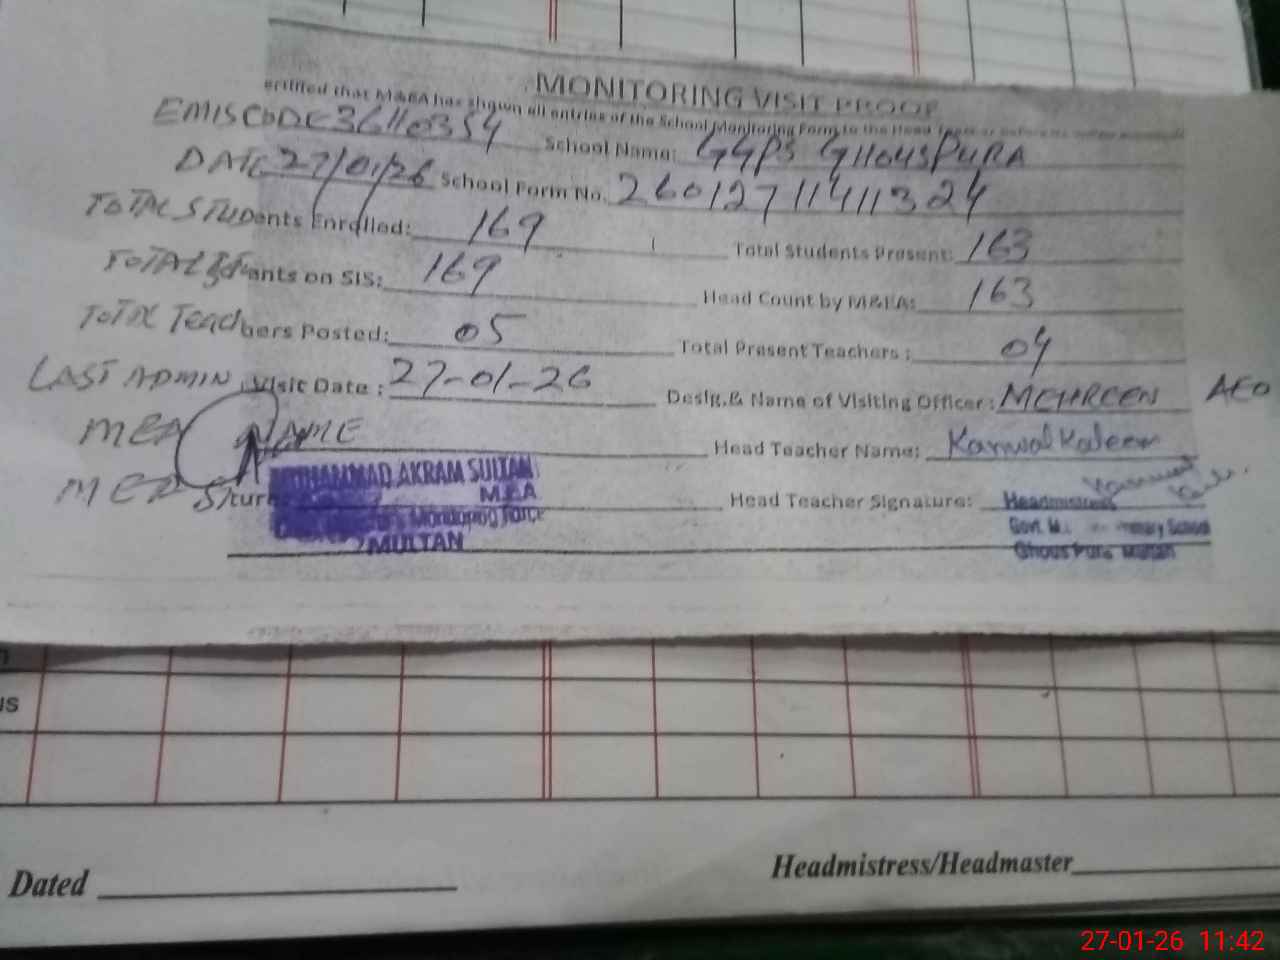 MONITORING VISIT PROOF
ertified that M&EA has shown all entries of the School Monitoring Form to the Head
EMIS CODE 36110354 School Name: GGPS GHOUSPURA
DATE 27/01/26 School Form No. 26012711411324
TOTAL STUDents Enrolled: 169 Total Students Present: 163
TOTAL Students on SIS: 169 Head Count by M&EA: 163
TOTAL Teachers Posted: 05 Total Present Teachers: 04
LAST ADMIN. Visit Date: 27-01-26 Desig.& Name of Visiting Officer: MEHREEN AEO
MEA NAME Head Teacher Name: Kanwal Kaleem
MUHAMMAD AKRAM SULTAN
MEA Head Teacher Signature:
M&EA
Monitoring Force
MULTAN
Headmistress
Govt. Primary School
Ghous Pura Multan
Dated
Headmistress/Headmaster
27-01-26 11:42